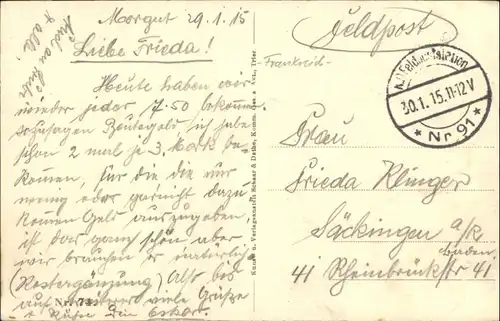 Morgut 29.1.15
Liebe Frieda!
Heute haben wir
wieder jeder 7.50 bekommen
sozusagen Beutegeld ich habe
schon 2 mal je 3. Mark be-
kommen, für die die nur
wenig oder garnicht dazu
kommen Geld auszugeben,
ist das ganz schön aber
wir brauchen es natürlich
Also
auf viele Grüße
u Küsse Dein Oskar.
Nr.
Kunst- u. Verlagsanstalt Schaar & Dathe, Komm.-Ges. a. Akt., Trier
Feldpost
Frankreich-
K.D. Feldpoststation
30.1.15.11-12V
* Nr 91 *
Frau
Frieda Klinger
Säckingen a/R
Baden
41 Rheinbrückstr 41